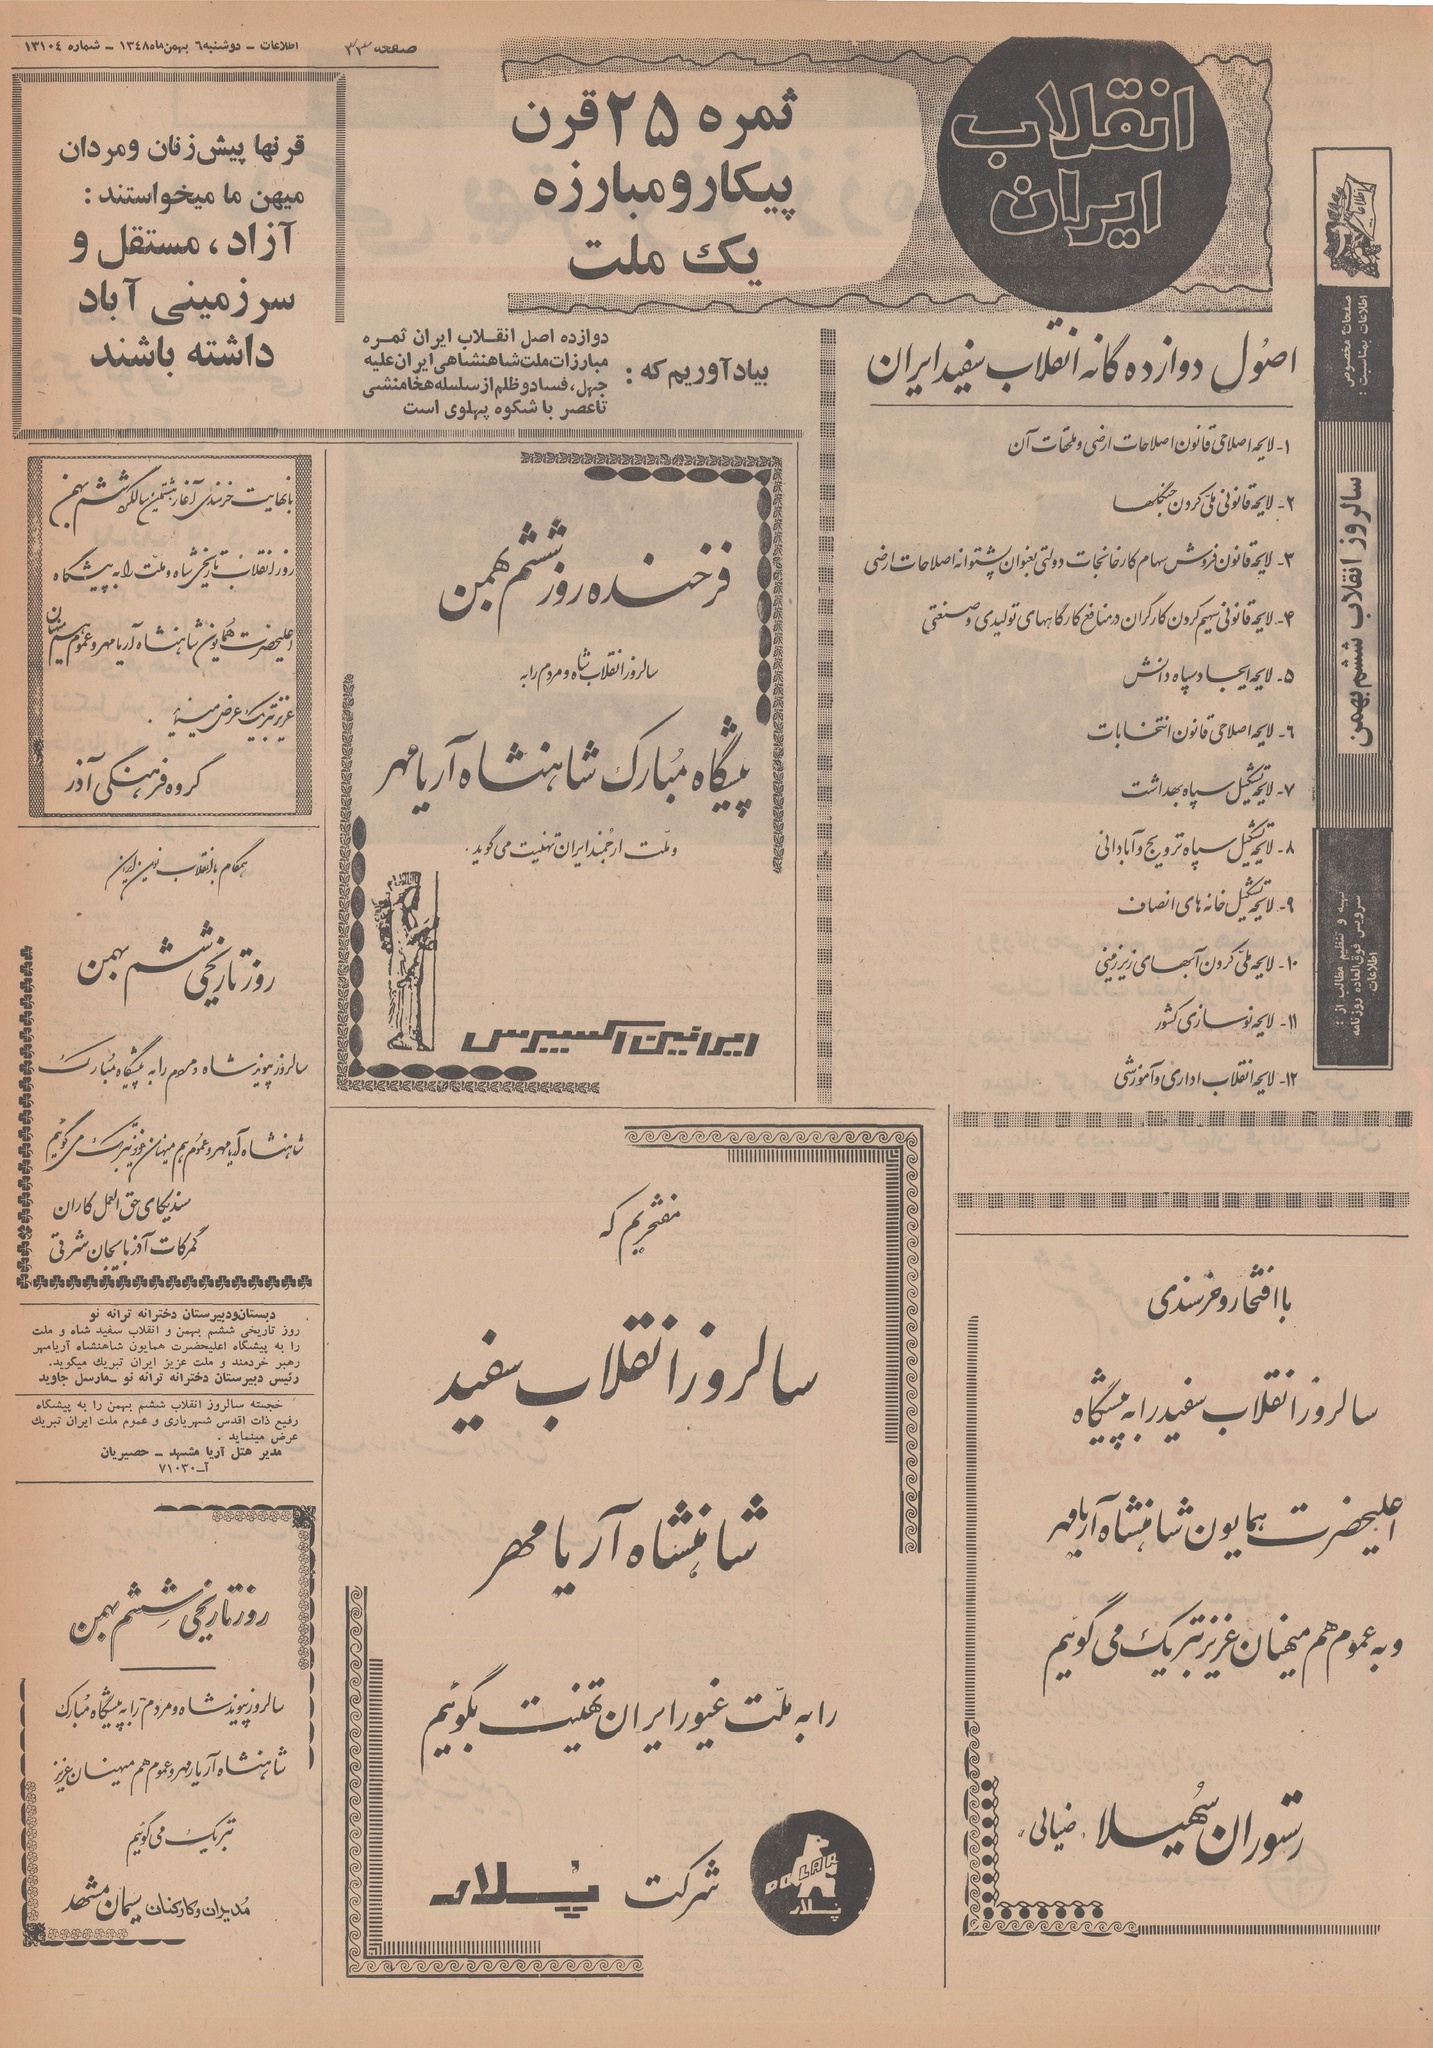 اطلاعات – دوشنبه ٦ بهمن ماه ١٣٤٨ – شماره ١٣١٠٤
صفحه ۳۳
انقلاب
ایران
ثمره ۲۵ قرن
پیکار و مبارزه
یک ملت
قرنها پیش زنان و مردان
میهن ما میخواستند :
آزاد ، مستقل و
سرزمینی آباد
داشته باشند
بیاد آوریم که :
دوازده اصل انقلاب ایران ثمره
مبارزات ملت شاهنشاهی ایران علیه
جهل ، فساد و ظلم از سلسله هخامنشی
تا عصر با شکوه پهلوی است
اطلاعات
صفحات مخصوص
اطلاعات بمناسبت :
سالروز انقلاب ششم بهمن
تهیه و تنظیم مطالب از :
سرویس فوق العاده روزنامه
اطلاعات
اصول دوازده گانه انقلاب سفید ایران
۱- لایحه اصلاحی قانون اصلاحات ارضی و ملحقات آن
۲- لایحه قانونی ملی کردن جنگلها
۳- لایحه قانون فروش سهام کارخانجات دولتی بعنوان پشتوانه اصلاحات ارضی
۴- لایحه قانونی سهیم کردن کارگران در منافع کارگاههای تولیدی و صنعتی
۵- لایحه ایجاد سپاه دانش
۶- لایحه اصلاحی قانون انتخابات
۷- لایحه تشکیل سپاه بهداشت
۸- لایحه تشکیل سپاه ترویج و آبادانی
۹- لایحه تشکیل خانه های انصاف
۱۰- لایحه ملی کردن آبهای زیرزمینی
۱۱- لایحه نوسازی کشور
۱۲- لایحه انقلاب اداری و آموزشی
فرخنده روز ششم بهمن
سالروز انقلاب شاه و مردم را به
پیشگاه مبارک شاهنشاه آریامهر
و ملت ارجمند ایران تهنیت می گوید .
ایرانین اکسپرس
با نهایت خرسندی آغاز هشتمین سالگرد ششم بهمن
روز انقلاب تاریخی شاه و ملت را به پیشگاه
اعلیحضرت همایون شاهنشاه آریامهر و عموم هم میهنان
عزیز تبریک عرض مینماید .
گروه فرهنگی آذر
همگام با انقلاب نوین ایران
روز تاریخی ششم بهمن
سالروز پیوند شاه و مردم را به پیشگاه مبارک
شاهنشاه آریامهر و عموم هم میهنان عزیز تبریک می گوئیم
سندیکای حق العمل کاران
گمرکات آذربایجان شرقی
دبستان و دبیرستان دخترانه ترانه نو
روز تاریخی ششم بهمن و انقلاب سفید شاه و ملت
را به پیشگاه اعلیحضرت همایون شاهنشاه آریامهر
رهبر خردمند و ملت عزیز ایران تبریک میگوید.
رئیس دبیرستان دخترانه ترانه نو – مارسل جاوید
خجسته سالروز انقلاب ششم بهمن را به پیشگاه
رفیع ذات اقدس شهریاری و عموم ملت ایران تبریک
عرض مینماید .
مدیر هتل آریا مشهد – حصیریان
آ–۷۱۰۳۰
روز تاریخی ششم بهمن
سالروز پیوند شاه و مردم را به پیشگاه مبارک
شاهنشاه آریامهر و عموم هم میهنان عزیز
تبریک می گوئیم
مدیران و کارکنان سیمان مشهد
مفتخریم که
سالروز انقلاب سفید
شاهنشاه آریامهر
را به ملت غیور ایران تهنیت بگوئیم
شرکت پلار
POLAR
پلار
با افتخار و خرسندی
سالروز انقلاب سفید را به پیشگاه
اعلیحضرت همایون شاهنشاه آریامهر
و به عموم هم میهنان عزیز تبریک می گوئیم
رستوران سهیلا « ضیائی »